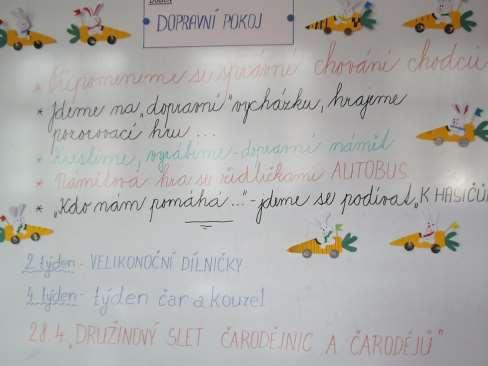 DOPRAVNÍ POKOJ
* Připomeneme si správné chování chodců
* Jdeme na „dopravní" vycházku, hrajeme
pozorovací hru ...
* Kreslíme, vyrábíme - dopravní námět
* Námětová hra se židličkami AUTOBUS
* „Kdo nám pomáhá..." - jdeme se podívat „K HASIČŮM
2. týden - VELIKONOČNÍ DÍLNIČKY
4. týden - týden čar a kouzel
28.4. „DRUŽINOVÝ SLET ČARODĚJNIC A ČARODĚJŮ"